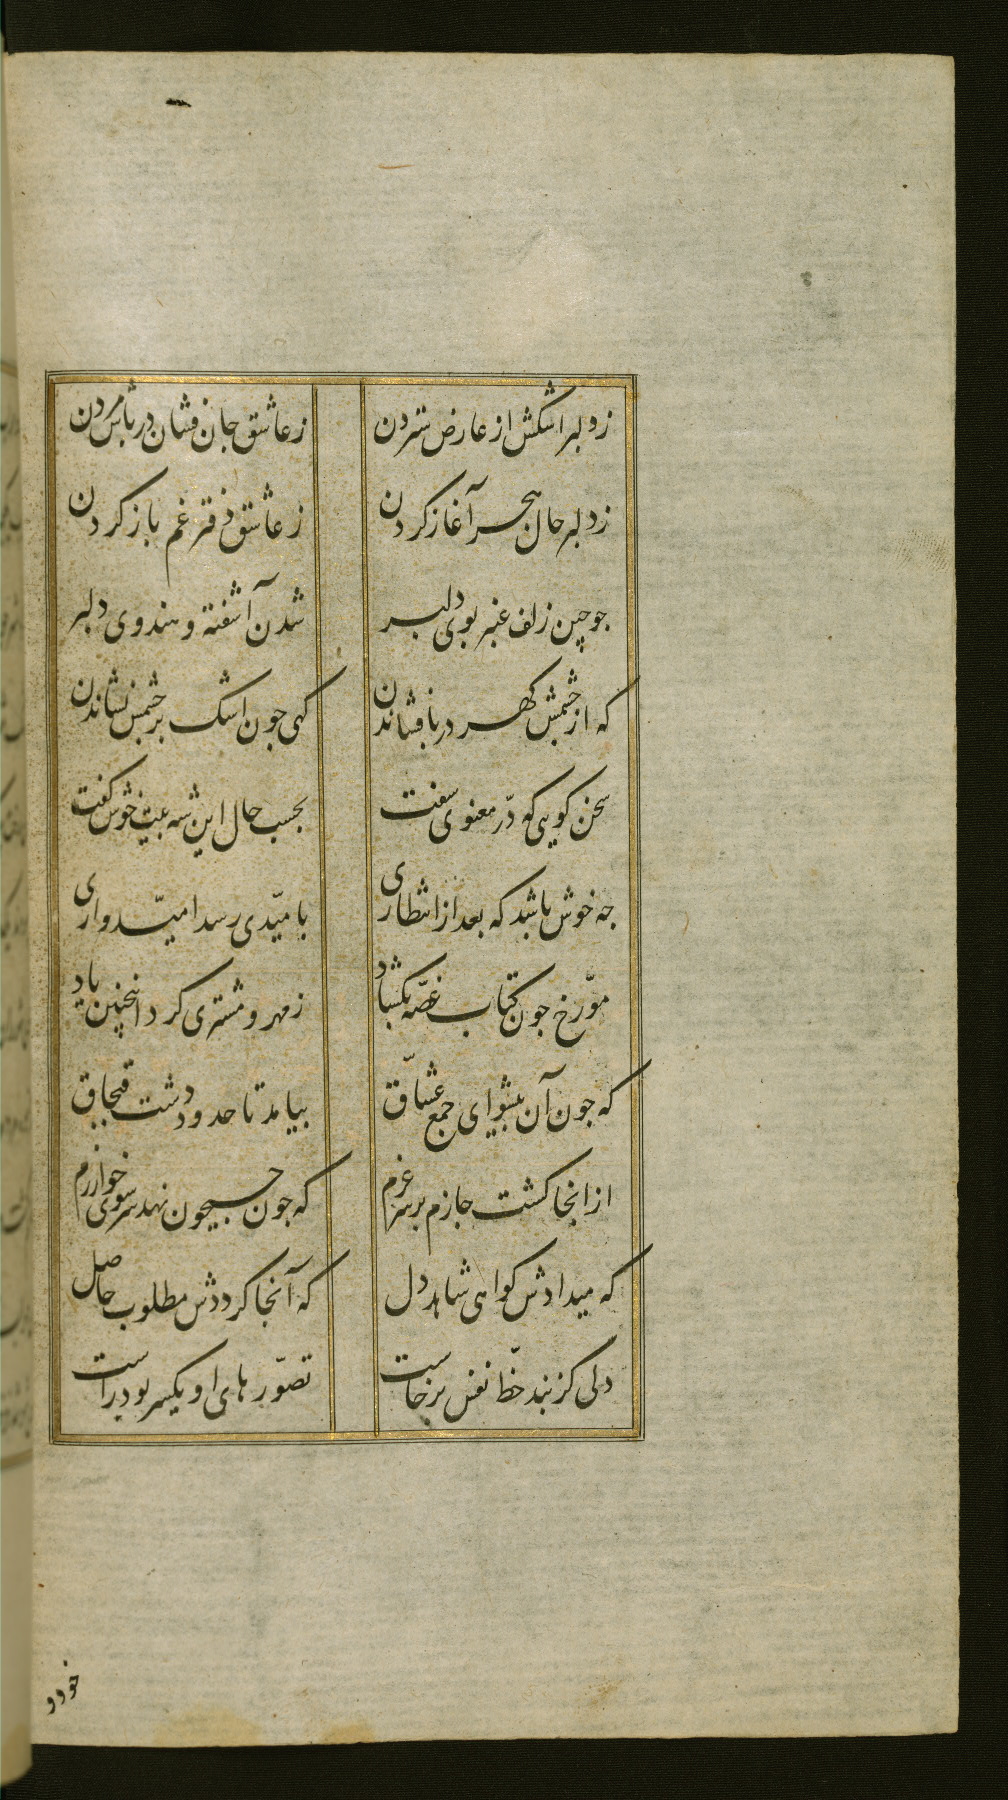 زدلبر اشکش از عارض ستردن زعاشق جان فشان در پاش مردن
زدلبر حال هجر آغاز کردن زعاشق دفتر غم باز کردن
جو چین زلف عنبر بوی دلبر شدن آشفته و هندوی دلبر
که از چشمش کهر در پا فشاندن کهی جون اشک بر چشمش نشاندن
سخن کویی که درّ معنوی سفت بحسب حال این شه بیت خوش کفت
جه خوش باشد که بعد از انتظاری بامیّدی رسد امیّدواری
مورّخ جون کتاب غصّه بکشاد زمهر و مشتری کرد انچنین یاد
که جون آن پیشوای جمع عشّاق بیامد تا حدود دشت قبجاق
از انجا کشت جازم بر سر عزم که جون جیحون نهد سر سوی خوارزم
که میدادش کواهی شاهد دل که آنجا کرددش مطلوب حاصل
دلی کز بند حظّ نفس برخاست تصوّرهای او یکسر بود راست
خود و